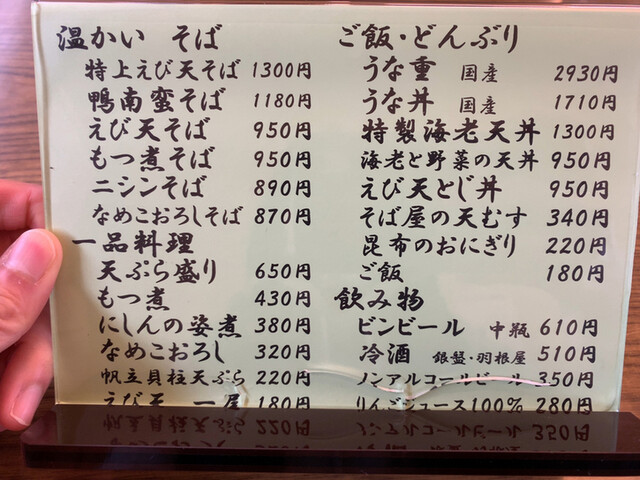 温かい そば
特上えび天そば 1300円
鴨南蛮そば 1180円
えび天そば 950円
もつ煮そば 950円
ニシンそば 890円
なめこおろしそば 870円
一品料理
天ぷら盛り 650円
もつ煮 430円
にしんの姿煮 380円
なめこおろし 320円
帆立貝柱天ぷら 220円
えび天 一尾 180円
ご飯・どんぶり
うな重 国産 2930円
うな丼 国産 1710円
特製海老天丼 1300円
海老と野菜の天丼 950円
えび天とじ丼 950円
そば屋の天むす 340円
昆布のおにぎり 220円
ご飯 180円
飲み物
ビンビール 中瓶 610円
冷酒 銀盤・羽根屋 510円
ノンアルコールビール 350円
りんごジュース100% 280円